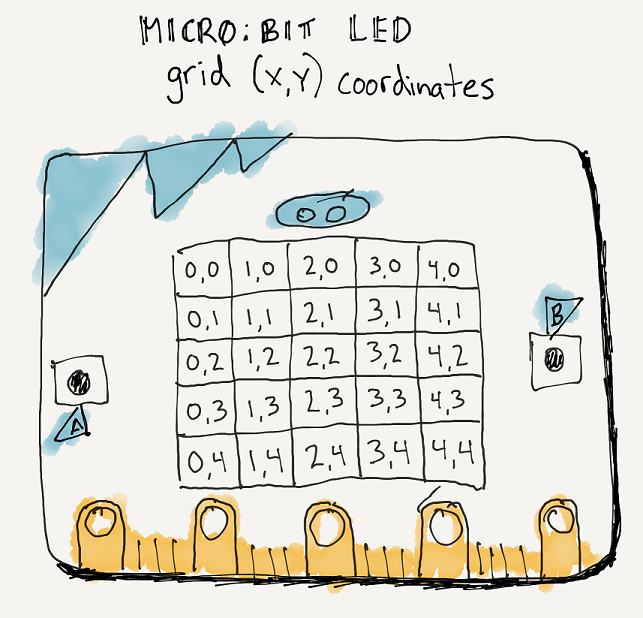 MICRO:BIT LED
grid (x,y) coordinates
0,0 1,0 2,0 3,0 4,0
0,1 1,1 2,1 3,1 4,1
B
0,2 1,2 2,2 3,2 4,2
0,3 1,3 2,3 3,3 4,3
A
0,4 1,4 2,4 3,4 4,4